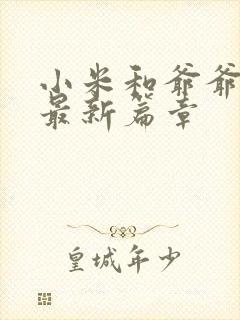 小米和爷爷
最新篇章
皇城年少